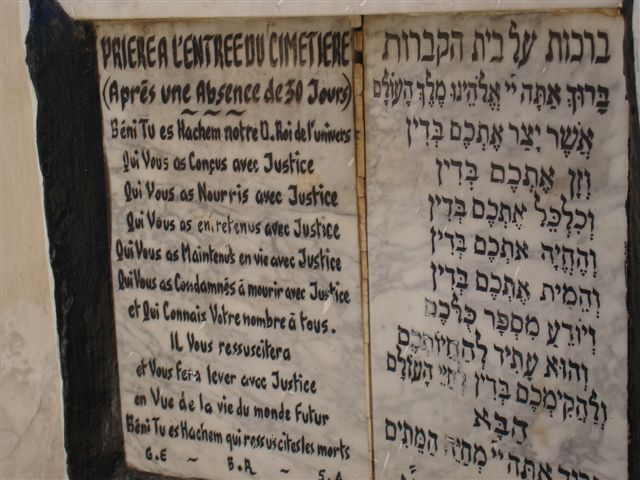 PRIERE A L'ENTREE DU CIMETIERE
(Aprés une Absence de 30 Jours)
Béni Tu es Hachem notre D. Roi de l'univers
Qui Vous as Conçus avec Justice
Qui Vous as Nourris avec Justice
Qui Vous as entretenus avec Justice
Qui Vous as Maintenus en vie avec Justice
Qui Vous as Condamnés à mourir avec Justice
et Qui Connais Votre nombre à tous.
IL Vous ressuscitera
et Vous fera lever avec Justice
en Vue de la vie du monde Futur
Béni Tu es Hachem qui ressuscites les morts
G.E - B.R - S.A
ברכות על בית הקברות
בָּרוּךְ אַתָּה יְיָ אֱלֹהֵינוּ מֶלֶךְ הָעוֹלָם
אֲשֶׁר יָצַר אֶתְכֶם בְּדִין
וְזָן אֶתְכֶם בְּדִין
וְכִלְכֵּל אֶתְכֶם בְּדִין
וְהֶחְיָה אֶתְכֶם בְּדִין
וְהֵמִית אֶתְכֶם בְּדִין
וְיוֹדֵעַ מִסְפַּר כֻּלְּכֶם
וְהוּא עָתִיד לְהַחֲיוֹתְכֶם
וְלַהֲקִימְכֶם בְּדִין לְחַיֵּי הָעוֹלָם
הַבָּא
בָּרוּךְ אַתָּה יְיָ מְחַיֵּה הַמֵּתִים